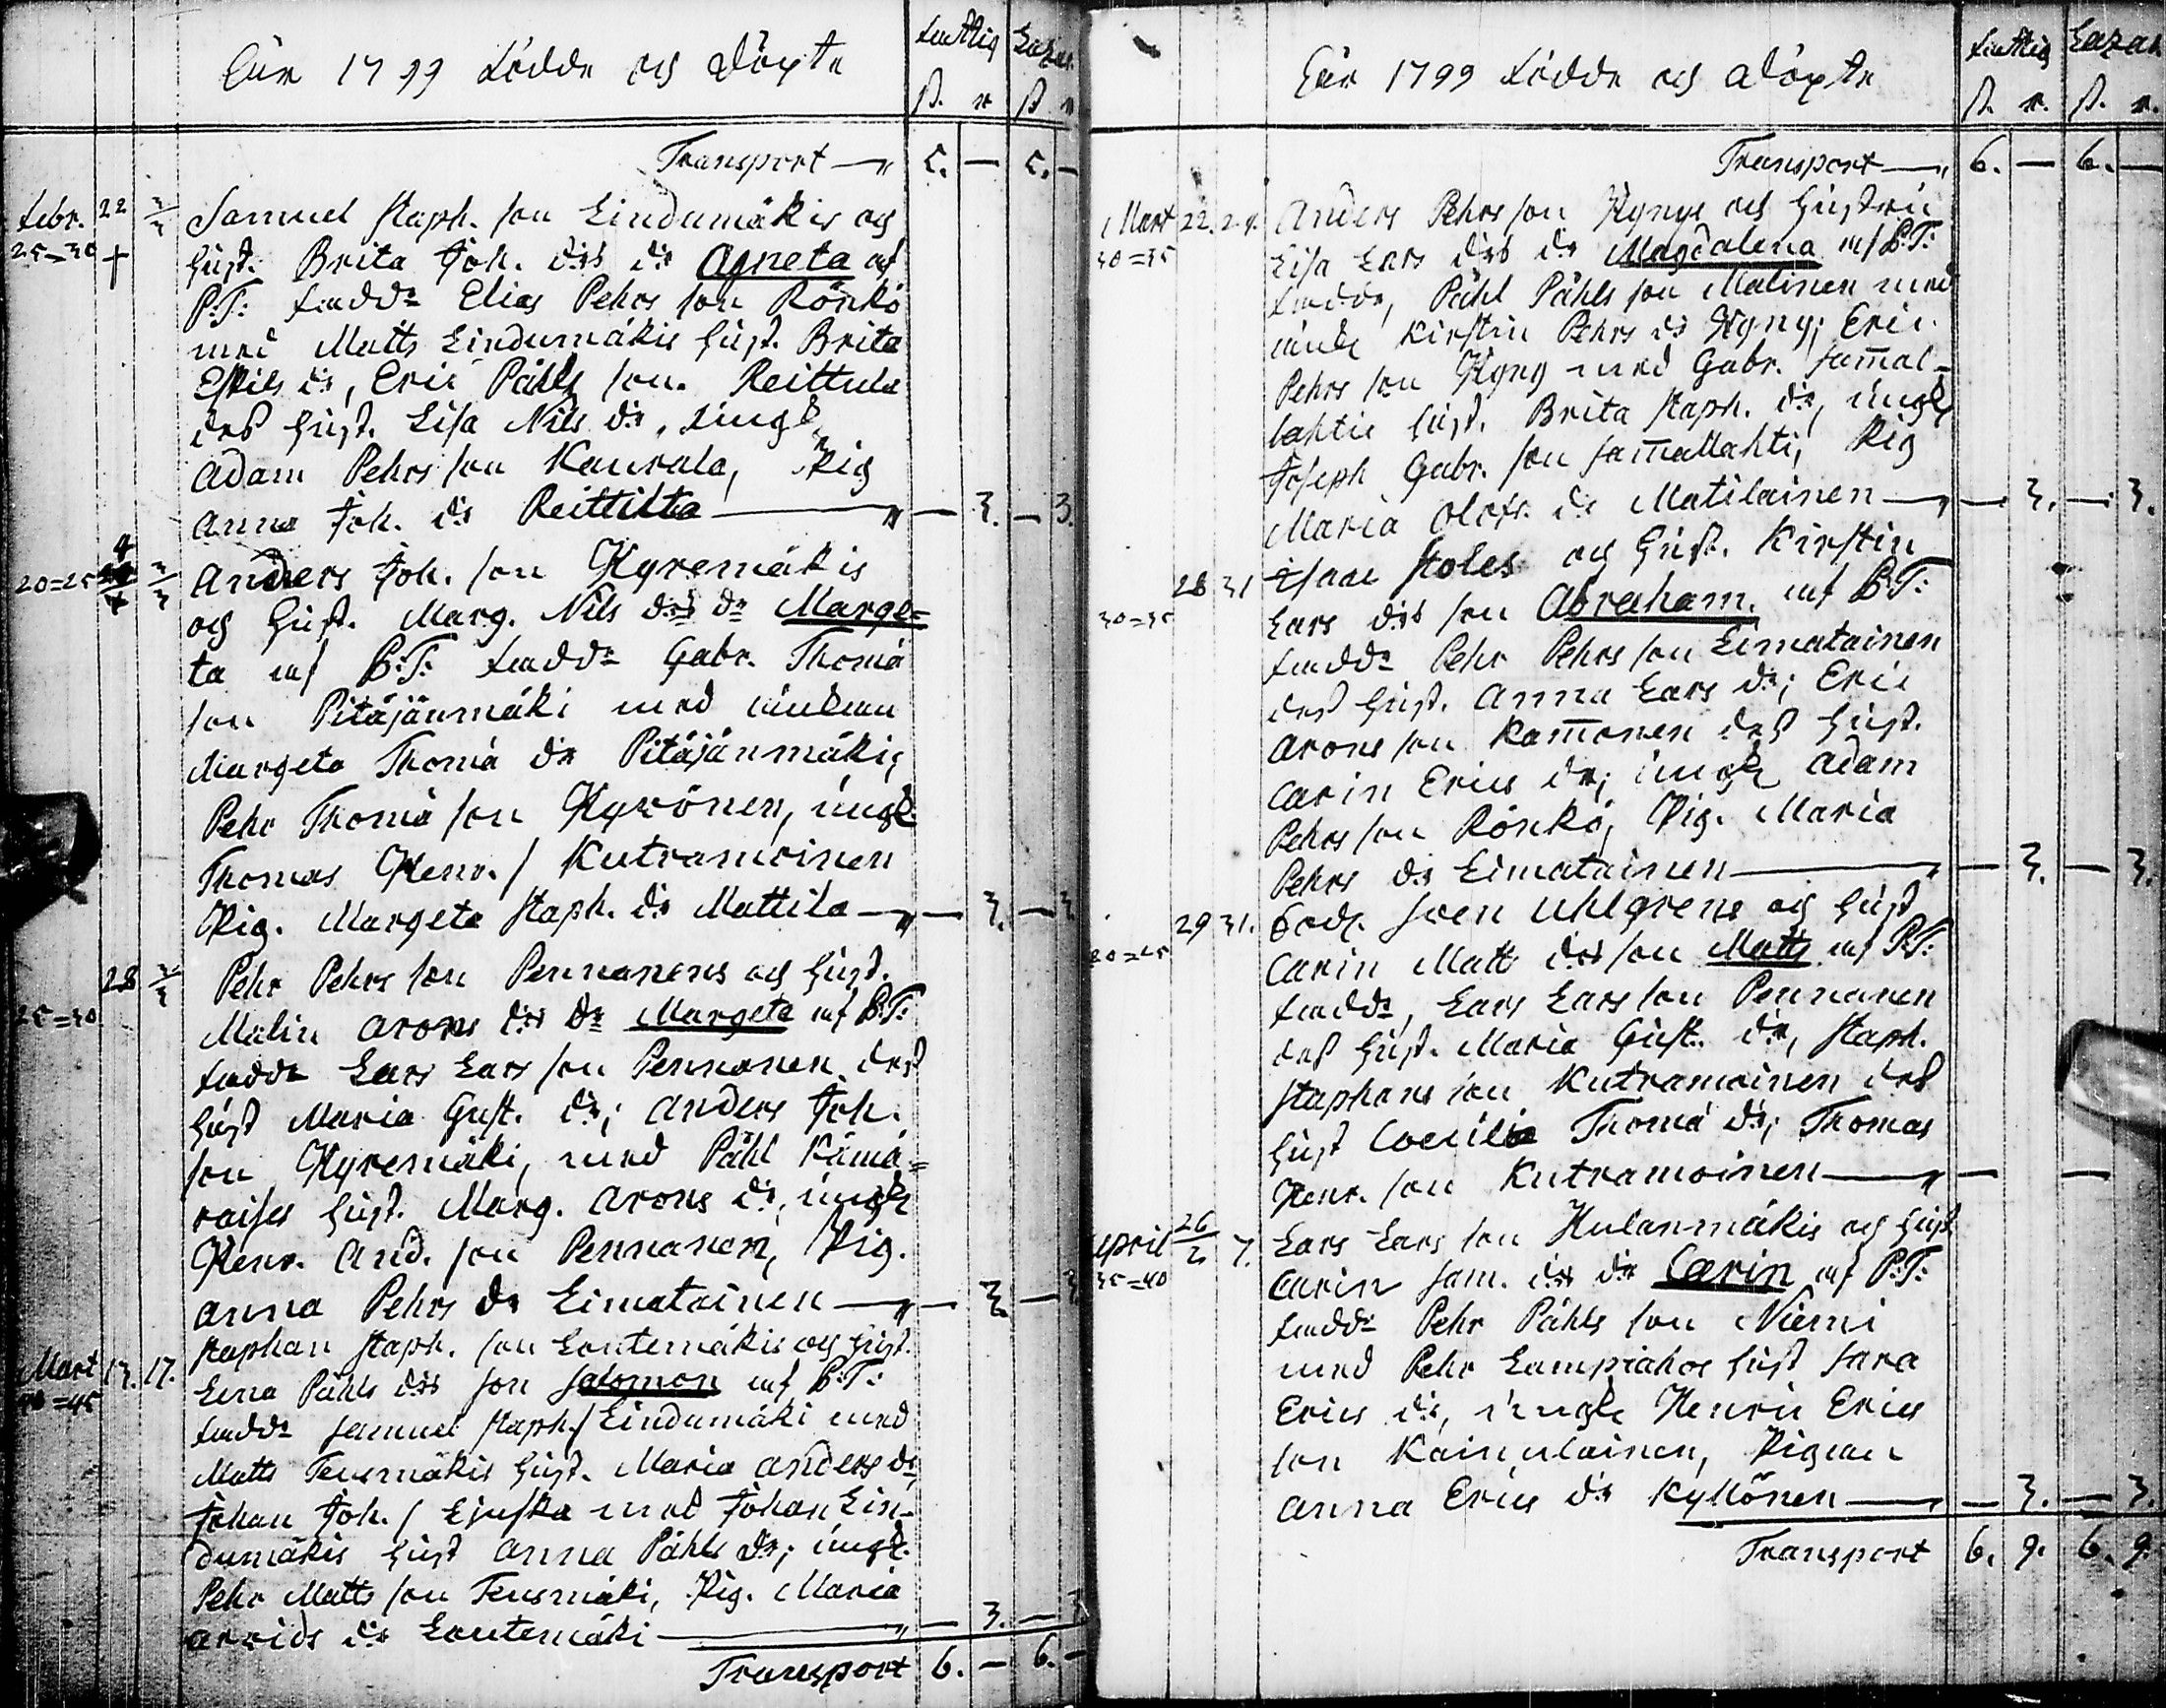 År 1799 födde och döpte
Fattig Lazar.
ß. r ß r
Transport — 5. — 5. —
Febr. 22 2/3 Samuel Staph. son Lindumäkis och
25=30 + hust. Brita Joh. drs dr Agneta af
B:T: fadde Elias Pehrs son Rönkö
med Matts Lindumäkis hust. Brita
Eskils dr, Eric Påhls son Reittula
dess hust. Lisa Nils dr, ungk.
Adam Pehrs son Kaurala, Pig
Anna Joh. dr Reittilta — 3. — 3.
20=25 2/3 Anders Joh. son Hyremäkis
och hust. Marg. Nils drs dr Marge=
ta af B:T: fadde Gabr. Thomä
son Pitäjänmäki med änkan
Margeta Thomä dr Pitäjänmäki,
Pehr Thomä son Hyvönen, ungk.
Thomas Henr. s Kutramoinen
Pig. Margeta Staph. dr Mattila — 3. — 3
28 2/3 Pehr Pehrs son Pennanens och hust.
25=30 Malin Arons drs dr Margeta af B:T:
fadde Lars Lars son Pennanen dess
hust Maria Gust. dr; Anders Joh.
son Hyremäki, med Påhl Kämä=
räises hust. Marg. Arons dr, ungk
Henr. And. son Pennanen, Pig.
Anna Pehrs dr Eimatainen — 3. — 3
Staphan Staph. son Lontemäkis och hust.
Mart 13. 17. Lena Påhls drs son Salomon af B:T:
40=45 fadde Samuel Staph. s Lindumäki med
Matts Teusmäkis hust. Maria Anders dr,
Johan Joh. s med Johan Lin-
dumäkis hust Anna Påhls dr; ungk.
Pehr Matts son Teusmäki, Pig. Maria
Arvids dr Lontemäki — 3. — 3
Transport 6. — 6. —
År 1799 födde och döpte
Fattig Lazar.
ß. r. ß. r.
Transport — 6. — 6. —
Mart 22. 24. Anders Pehrs son Hynys och hustru
30=35 Lisa Lars drs dr Magdalena af B:T:
fadde, Påhl Påhls son Malinen med
änk Kirstin Pehrs dr Hyny; Eric
Pehrs son Hyny med Gabr. Sam̄al-
lahtis hust. Brita Staph. dr, ungk
Joseph Gabr. son Sam̄allahti, Pig
Maria Olofs dr Matilainen — 3. — 3.
28 31 Isaac Stoles och hust. Kirstin
30=35 Lars drs son Abraham af B:T:
fadde Pehr Pehrs son Eimatainen
dess hust. Anna Lars dr; Eric
Arons son Kam̄onen dess hust.
Carin Erics dr; ungk Adam
Pehrs son Rönkö, Pig. Maria
Pehrs dr Eimatainen — 3. — 3.
29 31. Sven Uhlgrens och hust
20=25 Carin Matts drs son Matts af B:T:
fadde, Lars Lars son Pennanen
dess hust. Maria Gust. dr, Staph.
Staphans son Kutramoinen dess
hust Coecilia Thomä dr; Thomas
Henr. son Kutramoinen — —
April 26/2 7. Lars Lars son Hulanmäkis och hust
35=40 Carin Sam. drs dr Carin af B:T:
fadde Pehr Påhls son Niemi
med Pehr Lampiahos hust Sara
Erics dr, ungk Henric Erics
son Kainulainen, Pigan
Anna Erics dr Kyllönen — 3. — 3.
Transport 6. 9. 6. 9.